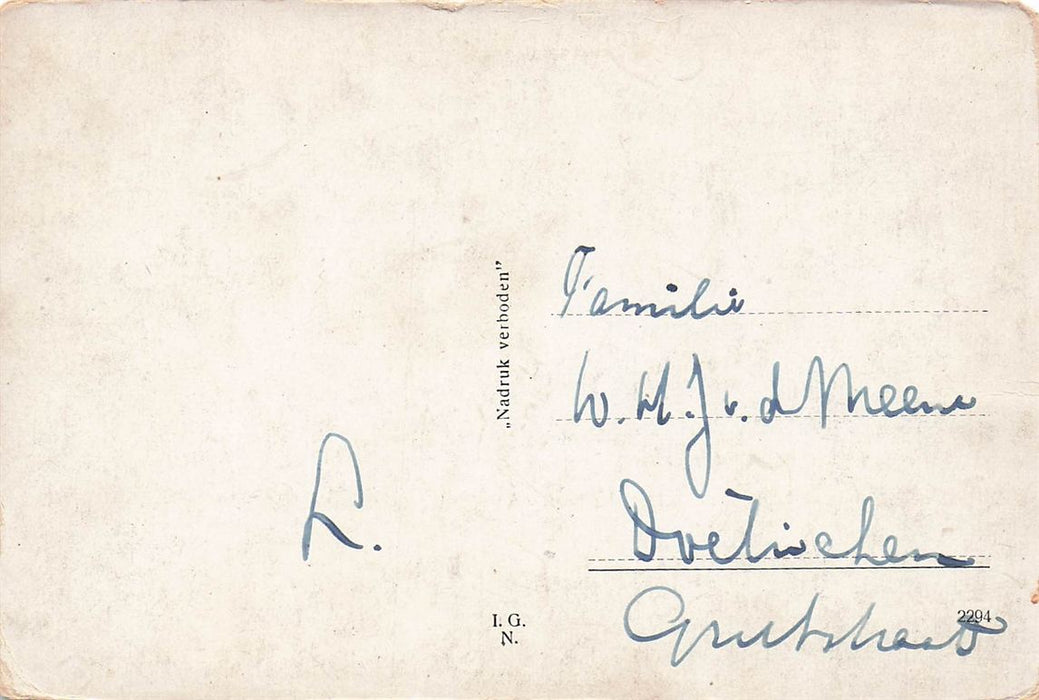 Familie
W. H. J v. d Meene
Doetinchem
Grutstraat
L.
„Nadruk verboden”
I. G.
N.
2294